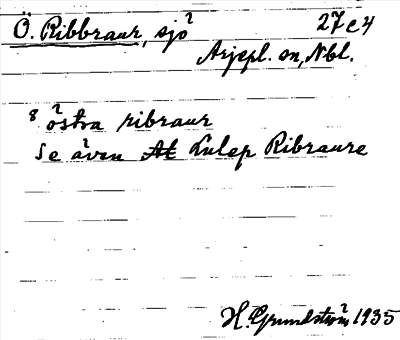 Ö. Ribbraur, sjö 27e4
Arjepl. sn, Nbl.
8 östra ribraur
Se även At Lulep Ribraure
H. Grundström 1935